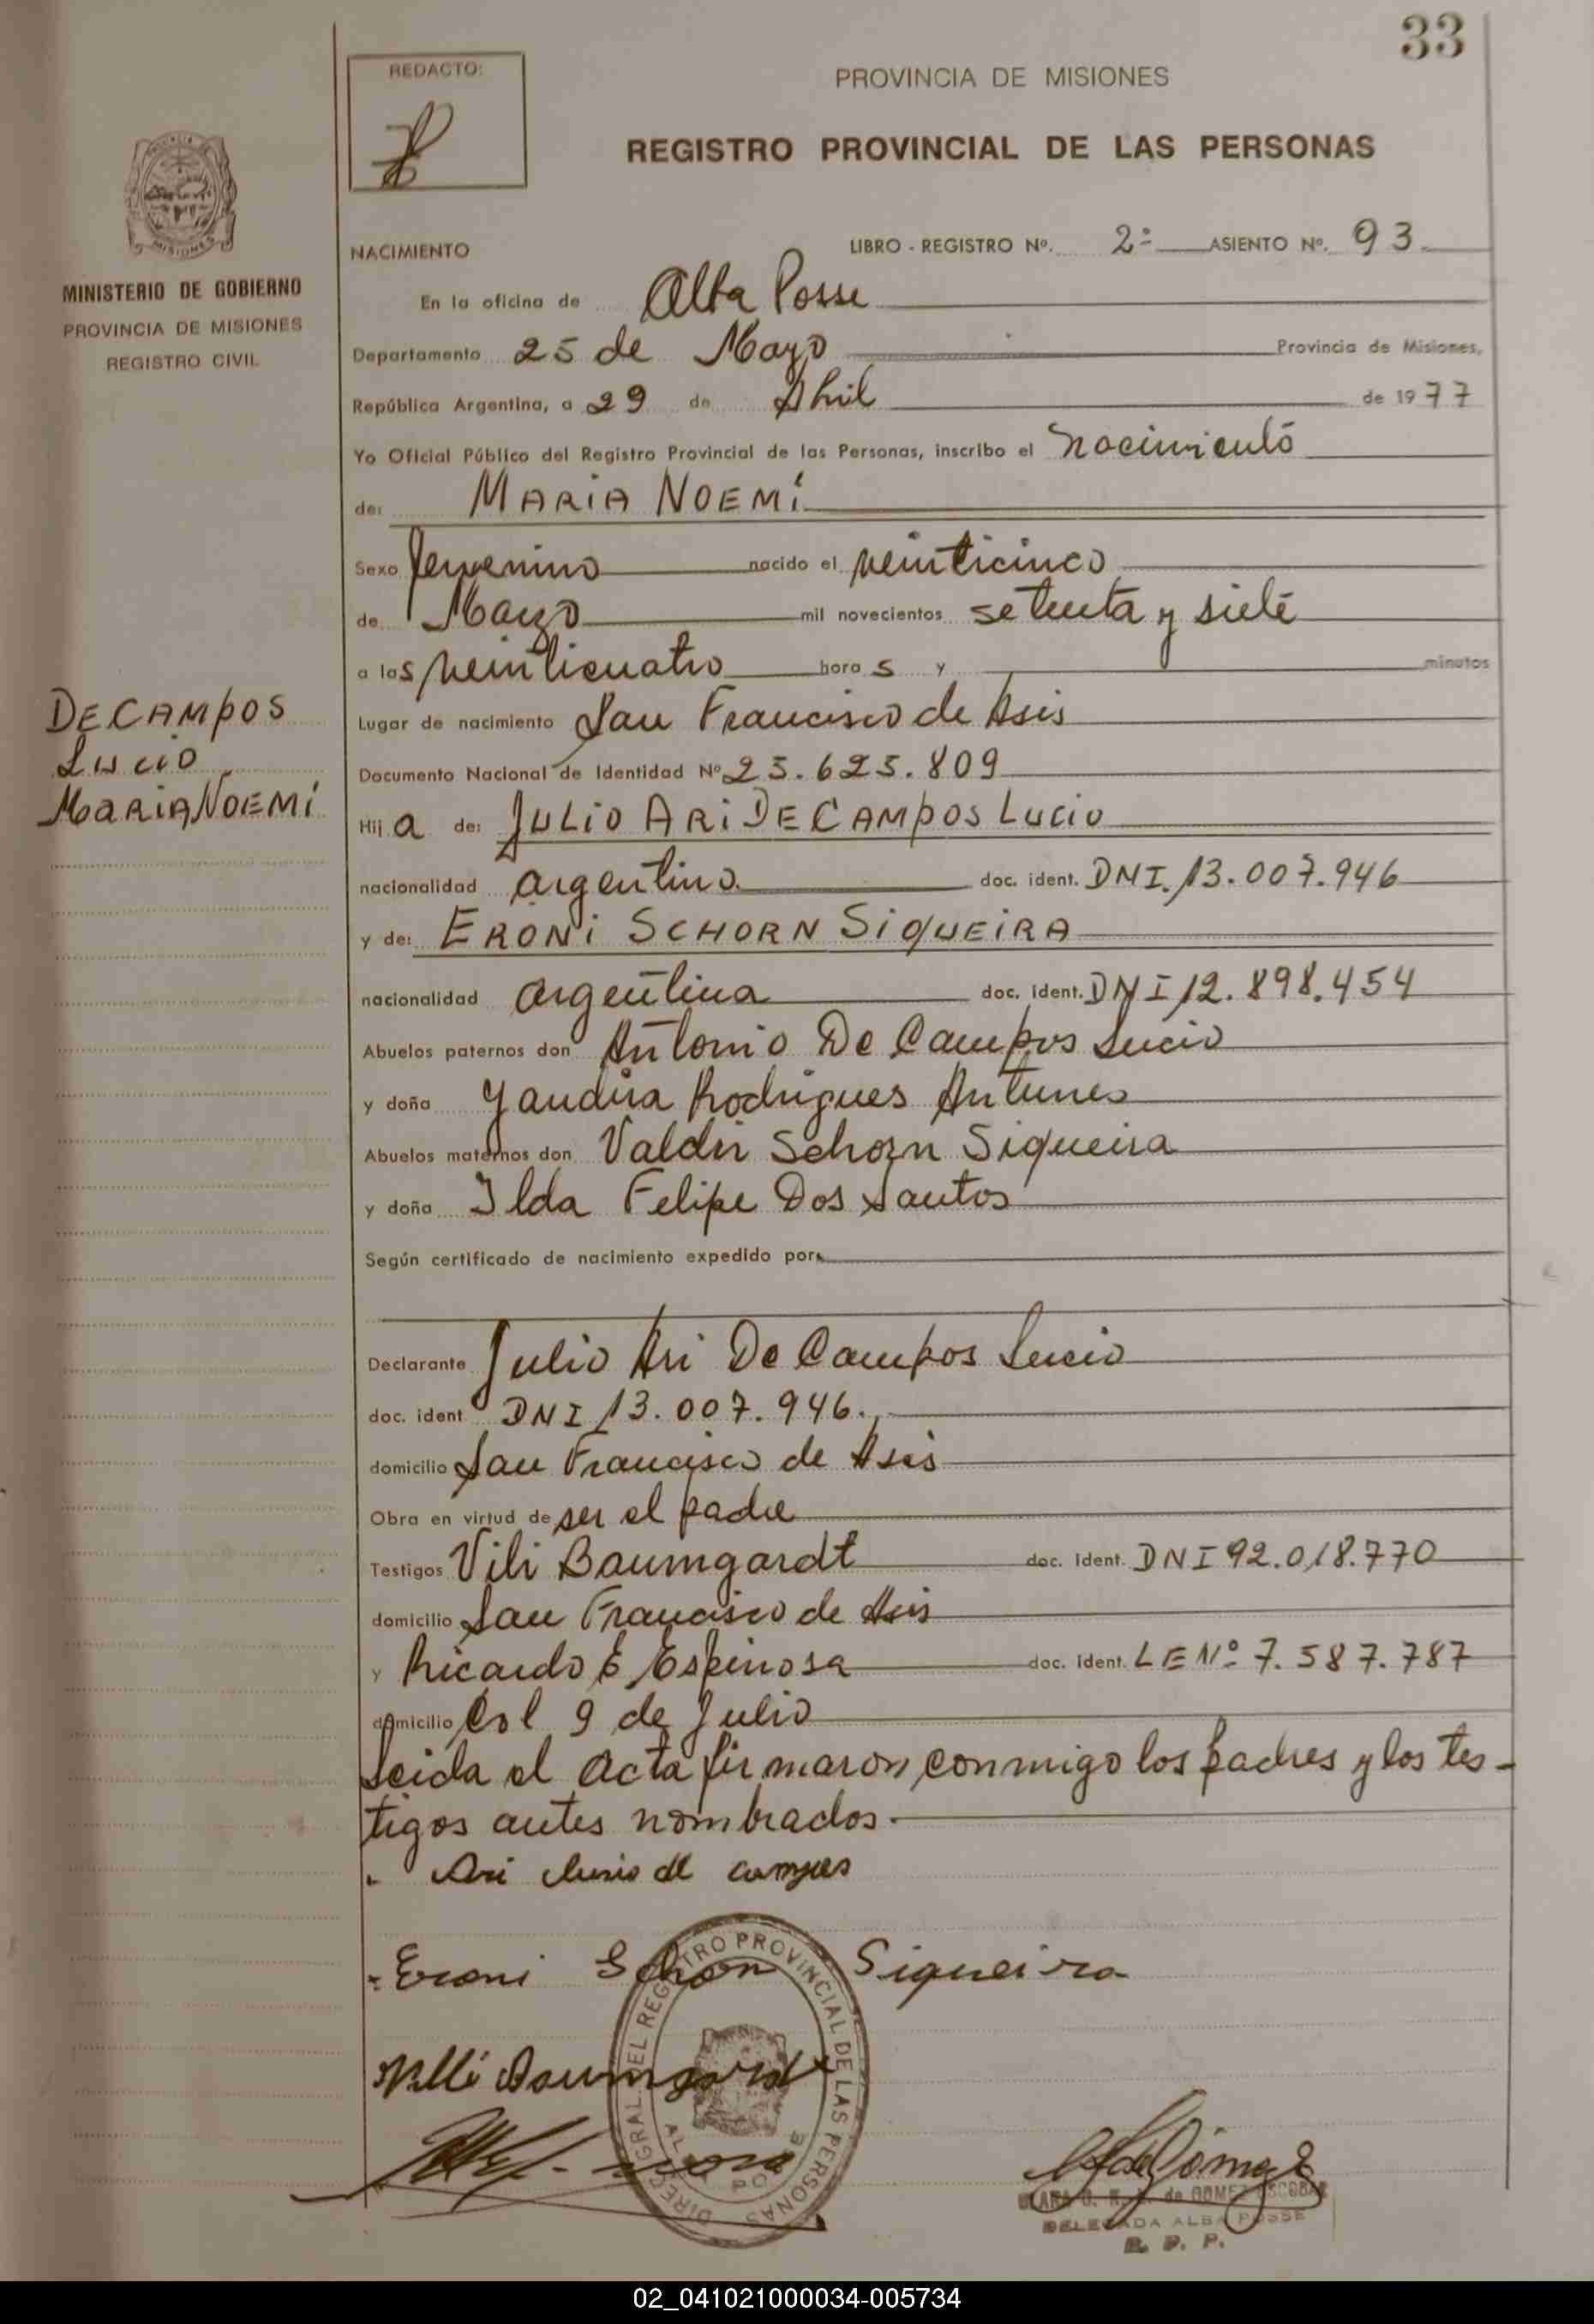 33
REDACTO:
PROVINCIA DE MISIONES
REGISTRO PROVINCIAL DE LAS PERSONAS
MISIONES
MINISTERIO DE GOBIERNO
PROVINCIA DE MISIONES
REGISTRO CIVIL
NACIMIENTO LIBRO - REGISTRO Nº. 2º ASIENTO Nº. 93
En la oficina de Alba Posse
Departamento 25 de Mayo Provincia de Misiones,
República Argentina, a 29 de Abril de 1977
Yo Oficial Público del Registro Provincial de las Personas, inscribo el nacimiento
de: MARIA NOEMí
Sexo femenino nacido el veinticinco
de Marzo mil novecientos setenta y siete
a las veinticuatro horas y minutos
DE CAMPOS
Lucio
MARIA NOEMí
Lugar de nacimiento San Francisco de Asis
Documento Nacional de Identidad Nº 25.625.809
Hija de: JULIO ARI DE CAMPOS Lucio
nacionalidad argentino doc. ident. DNI. 13.007.946
y de: ERONI SCHORN SIQUEIRA
nacionalidad argentina doc. ident. DNI 12.898.454
Abuelos paternos don Antonio De Campos Lucio
y doña Yandira Rodrigues Antunes
Abuelos maternos don Valdir Schorn Siqueira
y doña Ilda Felipe Dos Santos
Según certificado de nacimiento expedido por:
Declarante Julio Ari De Campos Lucio
doc. ident DNI 13.007.946.
domicilio San Francisco de Asis
Obra en virtud de ser el padre
Testigos Vili Baumgardt doc. ident. DNI 92.018.770
domicilio San Francisco de Asis
y Ricardo E Espinosa doc. ident. LE Nº 7.587.787
domicilio Col 9 de Julio
Leida el Acta firmaron conmigo los padres y los tes-
tigos antes nombrados.
Ari Lusio de campos
Eroni Schorn Siqueira
DIREC. GRAL. DEL REGISTRO PROVINCIAL DE LAS PERSONAS
de GOMEZ ESCOBAR
DELEGADA ALBA POSSE
R. P. P.
02_041021000034-005734